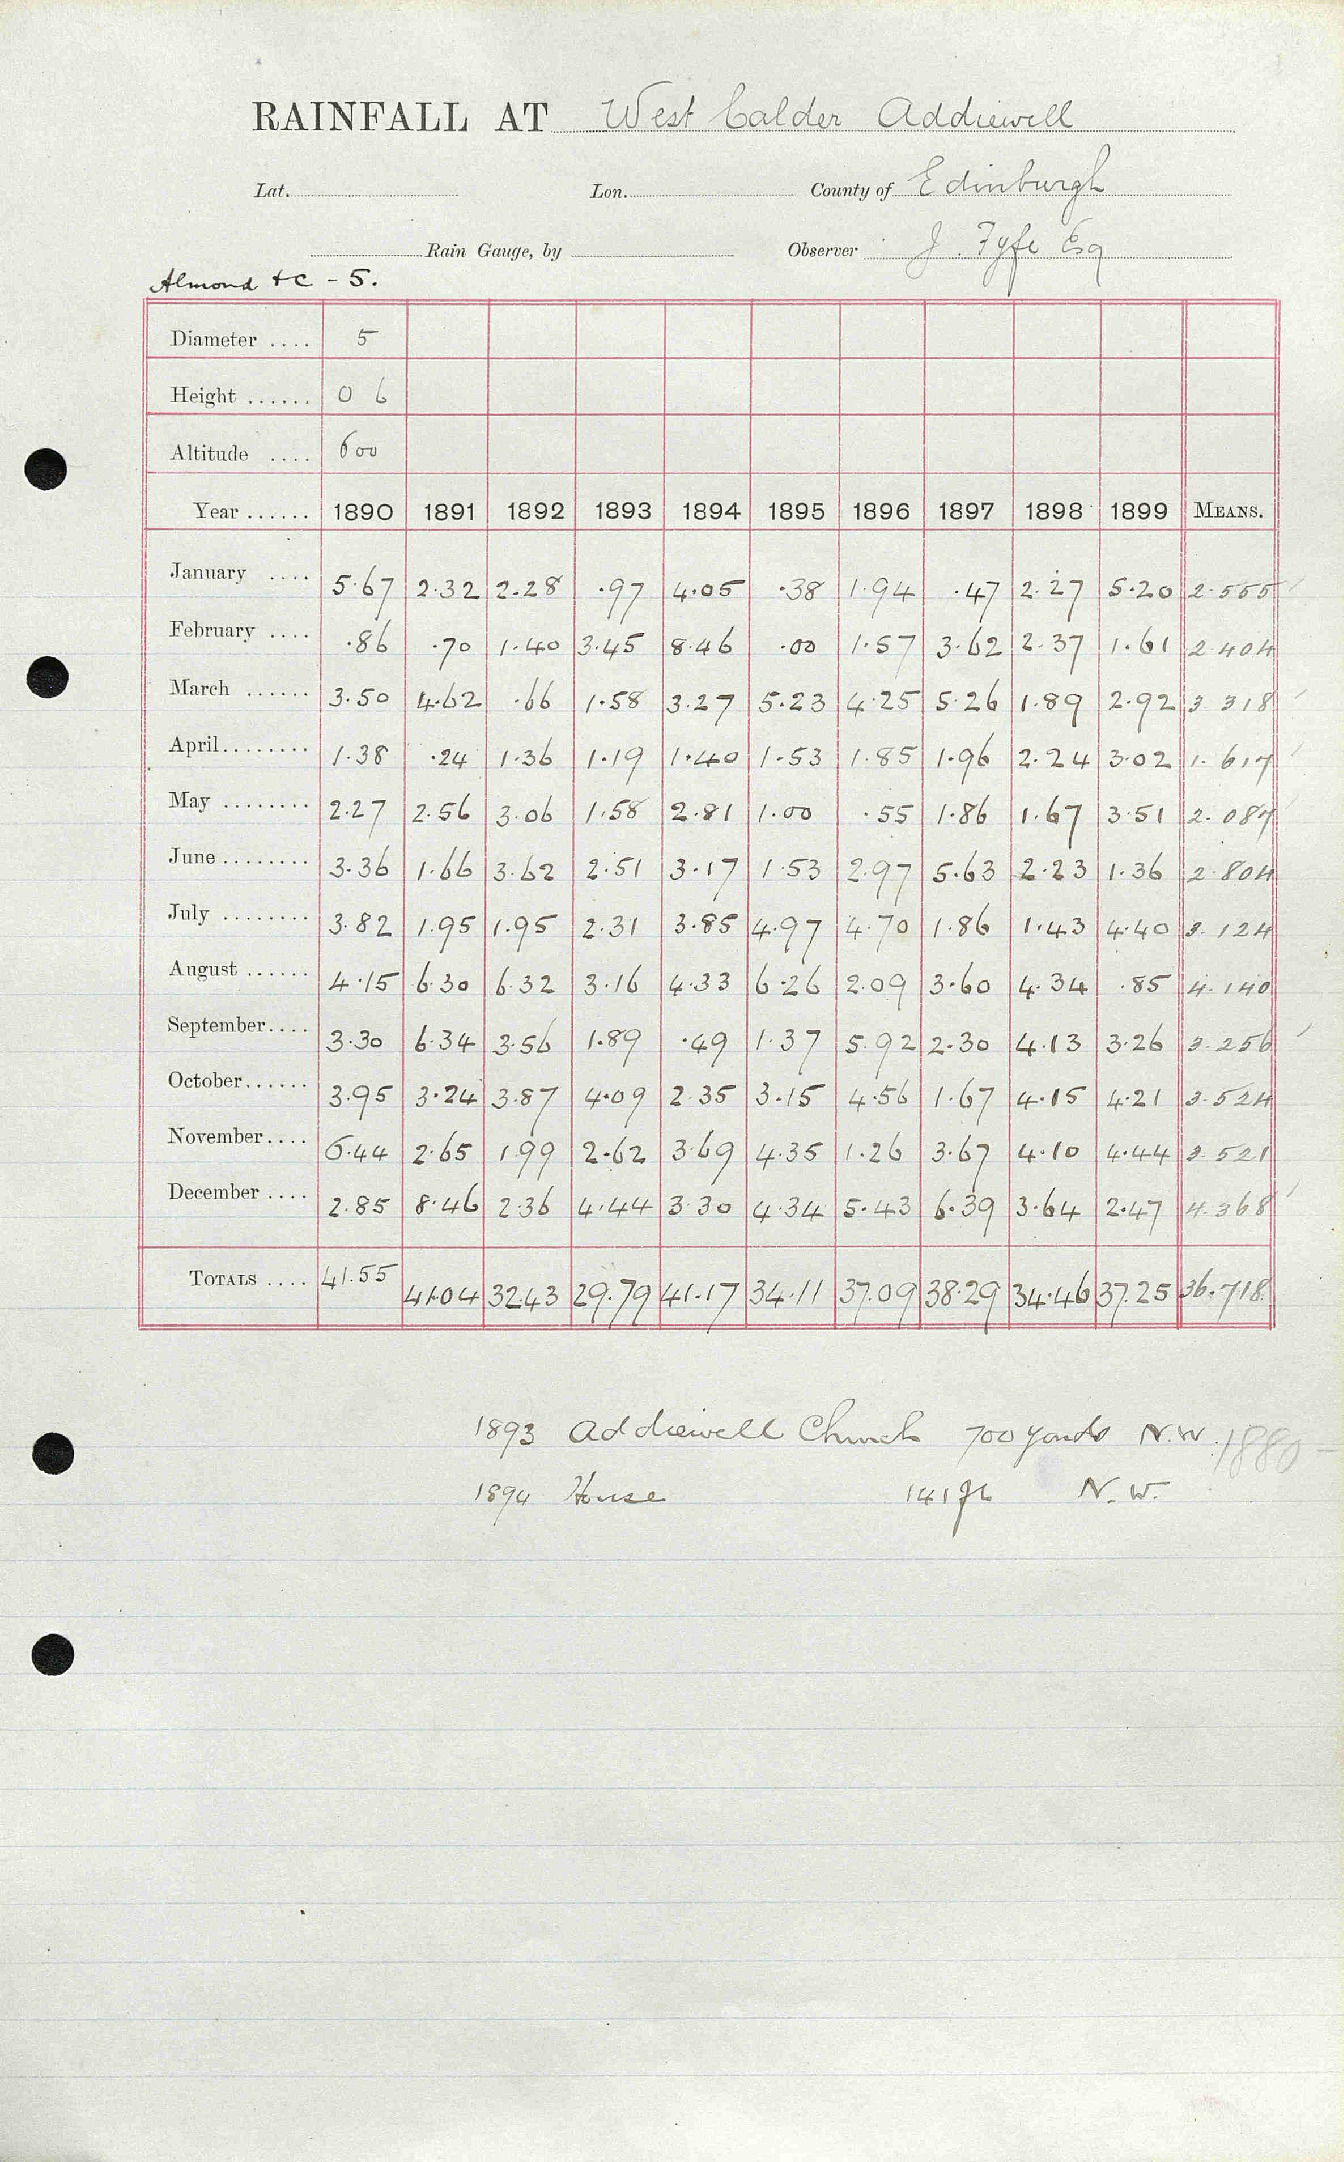 RAINFALL AT West Calder Addiewell
Lat. Lon. County of Edinburgh
Rain Gauge, by Observer J. Fyfe Esq
Almond &c - 5.
Diameter .... 5
Height ...... 0 6
Altitude .... 600
Year ...... 1890 1891 1892 1893 1894 1895 1896 1897 1898 1899 MEANS.
January .... 5.67 2.32 2.28 .97 4.05 .38 1.94 .47 2.27 5.20 2.555
February .... .86 .70 1.40 3.45 8.46 .00 1.57 3.62 2.37 1.61 2.404
March ...... 3.50 4.62 .66 1.58 3.27 5.23 4.25 5.26 1.89 2.92 3.318
April ........ 1.38 .24 1.36 1.19 1.40 1.53 1.85 1.96 2.24 3.02 1.617
May ........ 2.27 2.56 3.06 1.58 2.81 1.00 .55 1.86 1.67 3.51 2.087
June ........ 3.36 1.66 3.62 2.51 3.17 1.53 2.97 5.63 2.23 1.36 2.804
July ........ 3.82 1.95 1.95 2.31 3.85 4.97 4.70 1.86 1.43 4.40 3.124
August ...... 4.15 6.30 6.32 3.16 4.33 6.26 2.09 3.60 4.34 .85 4.140
September .... 3.30 6.34 3.56 1.89 .49 1.37 5.92 2.30 4.13 3.26 3.256
October ...... 3.95 3.24 3.87 4.09 2.35 3.15 4.56 1.67 4.15 4.21 3.524
November .... 6.44 2.65 1.99 2.62 3.69 4.35 1.26 3.67 4.10 4.44 3.521
December .... 2.85 8.46 2.36 4.44 3.30 4.34 5.43 6.39 3.64 2.47 4.368
TOTALS .... 41.55 41.04 32.43 29.79 41.17 34.11 37.09 38.29 34.46 37.25 36.718
1893 Addiewell Church 700 yards N.W. 1880-
1894 House 141 ft N.W.